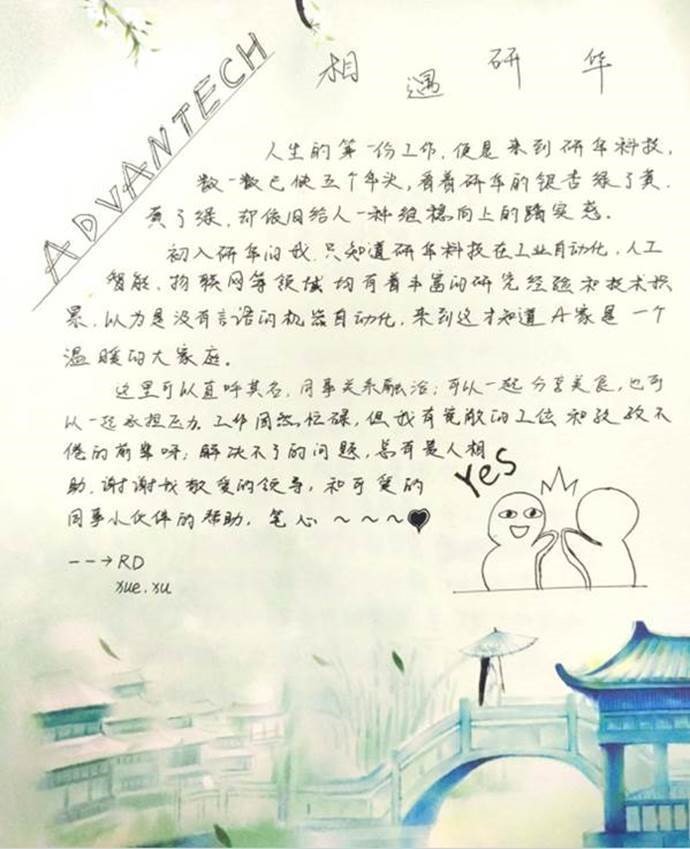 相遇研华
ADVANTECH
人生的第一份工作，便是来到研华科技，
数一数已快五个年头，看着研华的银杏绿了黄，
黄了绿，却依旧给人一种稳稳向上的踏实感。
初入研华的我，只知道研华科技在工业自动化，人工
智能，物联网等领域均有着丰富的研究经验和技术积
累，以为是没有言语的机器自动化，来到这才知道A家是一个
温暖的大家庭。
这里可以直呼其名，同事关系融洽；可以一起分享美食，也可
以一起承担压力。工作固然忙碌，但我有宽敞的工位和孜孜不
倦的前辈呀；解决不了的问题，总有贵人相
助，谢谢我敬爱的领导，和可爱的
同事小伙伴的帮助，笔心～～～
Yes
--→RD
xue.xu